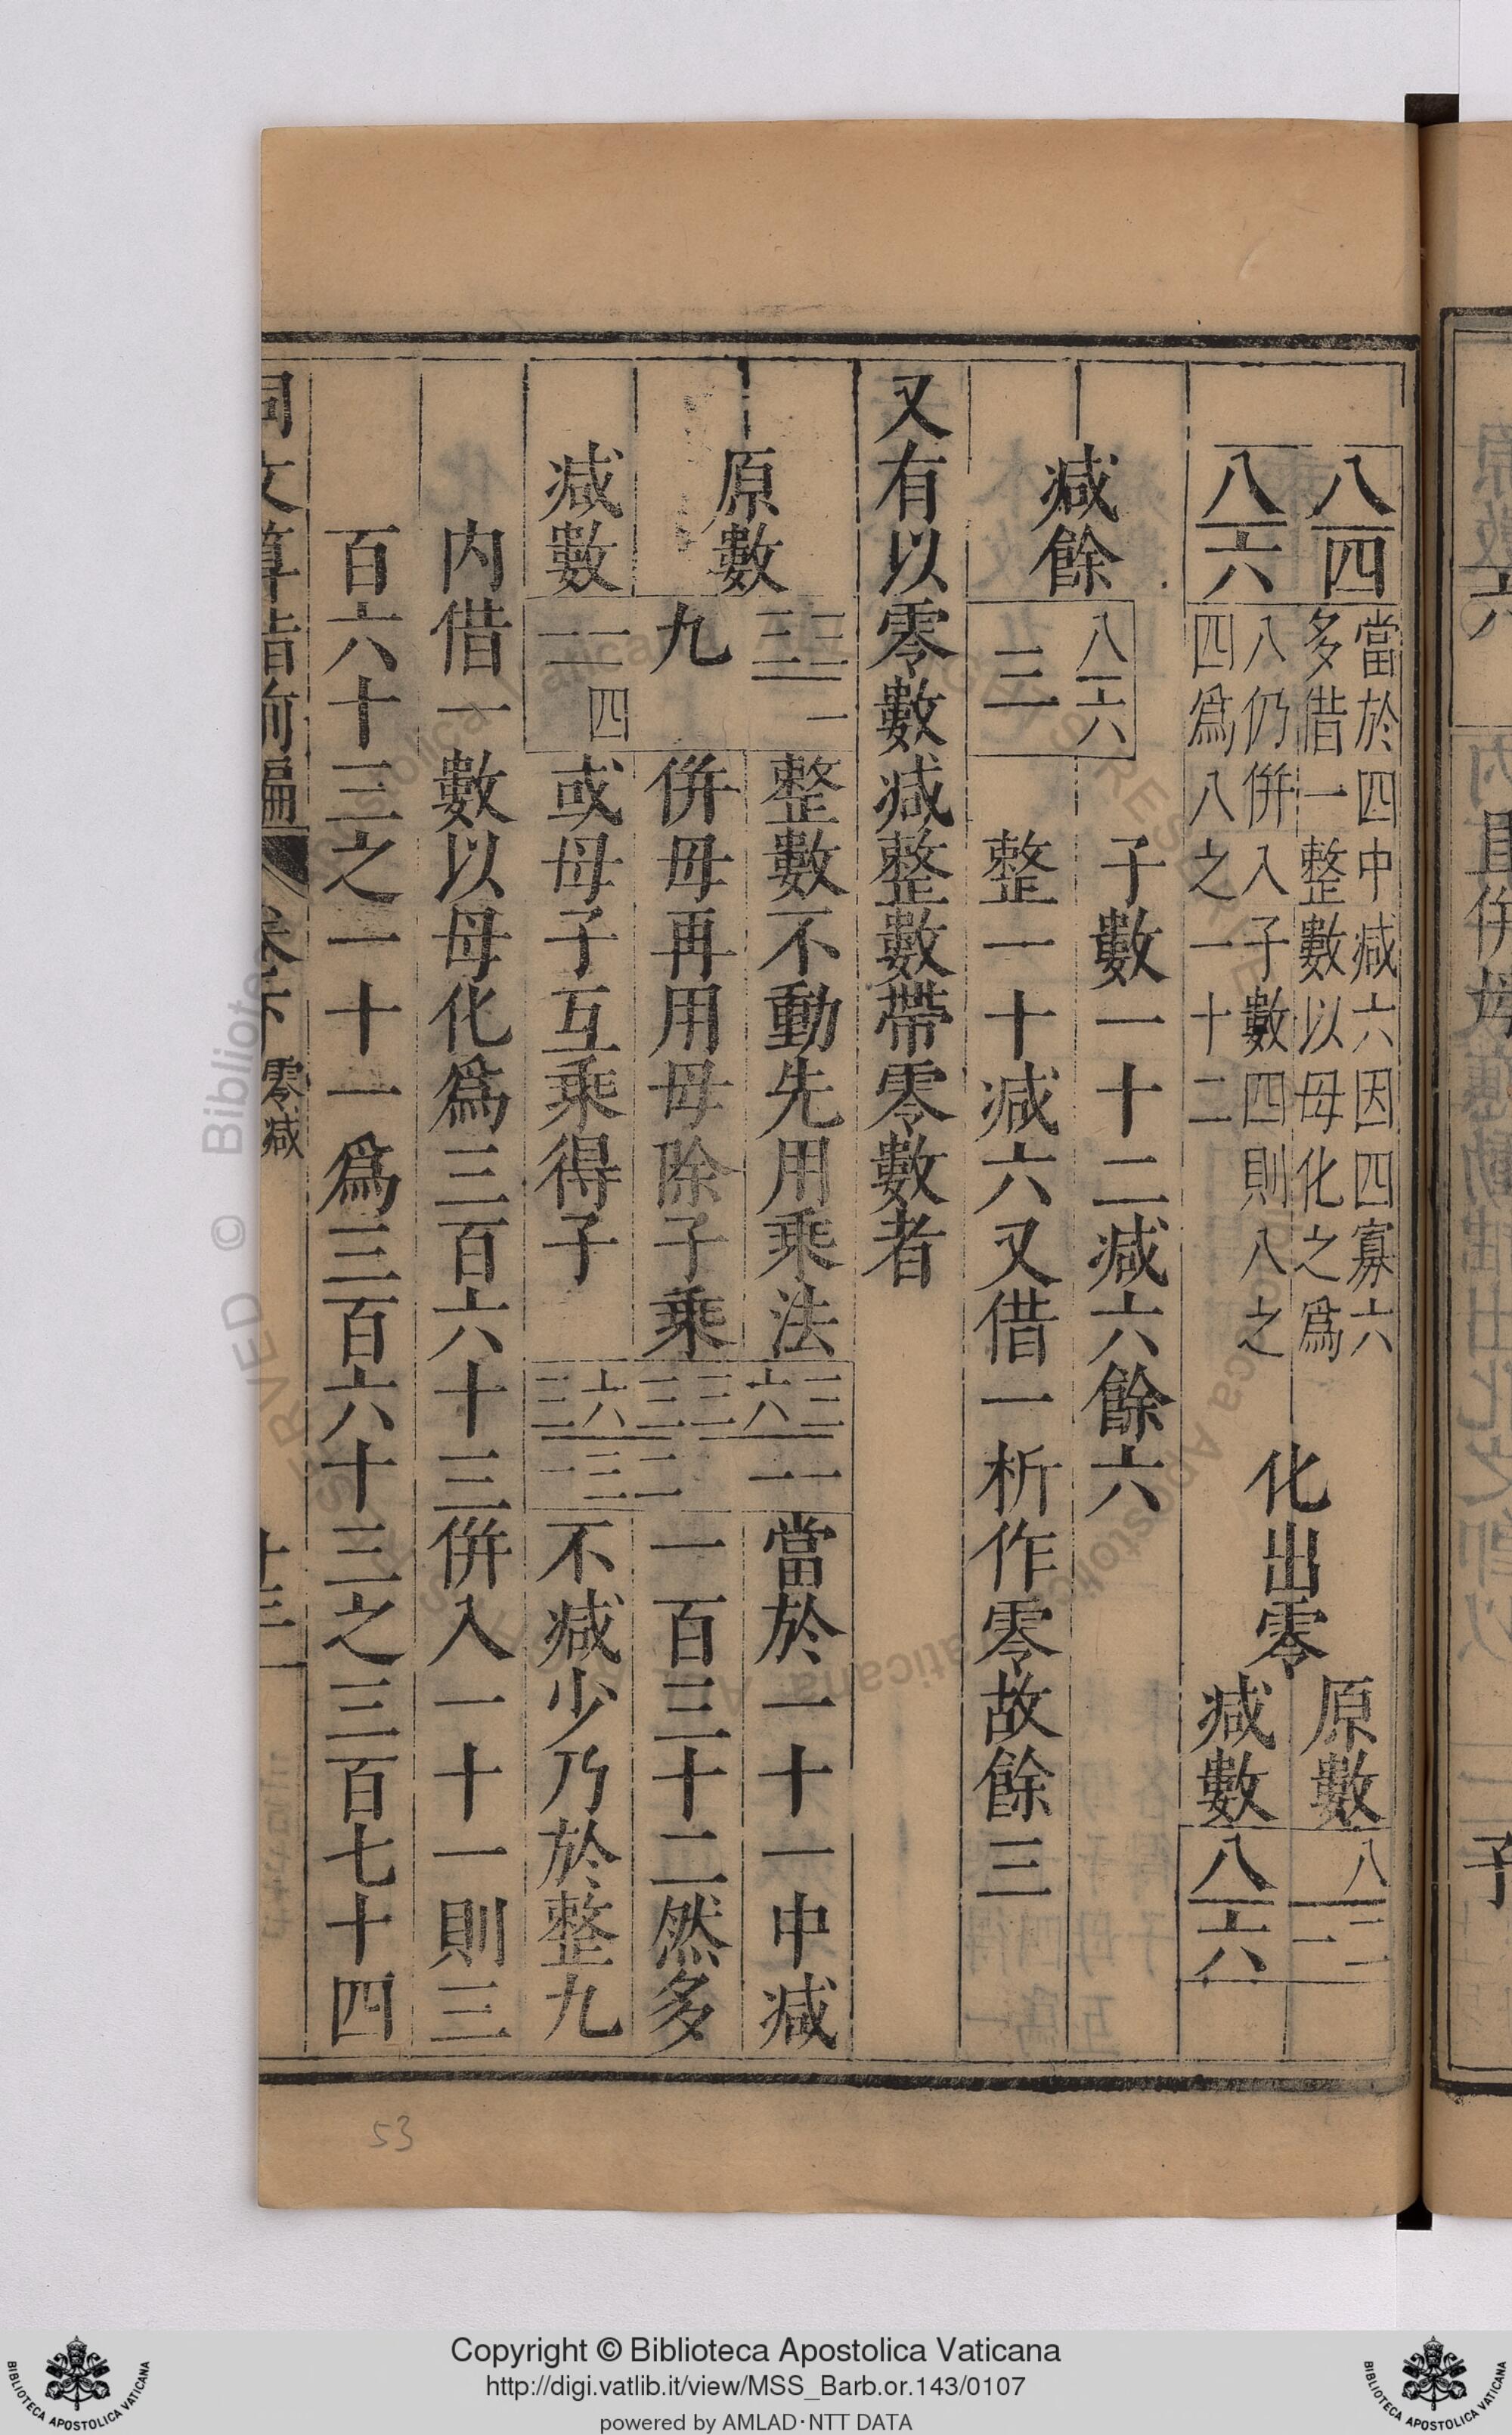 八四
八六
當於四中减六因四寡六
多借一整數以母化之爲
八仍併入子數四則八之
四爲八之一十二
化出零
原數
八
一二
减數
八六
减餘
八六
三
子數一十二减六餘六
整一十减六又借一析作零故餘三
又有以零數减整數帶零數者
原數
三三
一
九
整數不動先用乘法
併母再用母除子乘
减數
一一
四
或母子互乘得子
三六三三六三
一三二一一
當於一十一中减
一百三十二然多
不减少乃於整九
内借一數以母化爲三百六十三併入一十一則三
百六十三之一十一爲三百六十三之三百七十四
同文算指前編
卷下
零减
十三
原數六
子
53
© Biblioteca Apostolica Vaticana
Copyright © Biblioteca Apostolica Vaticana
http://digi.vatlib.it/view/MSS_Barb.or.143/0107
powered by AMLAD·NTT DATA
BIBLIOTECA APOSTOLICA VATICANA
BIBLIOTECA APOSTOLICA VATICANA